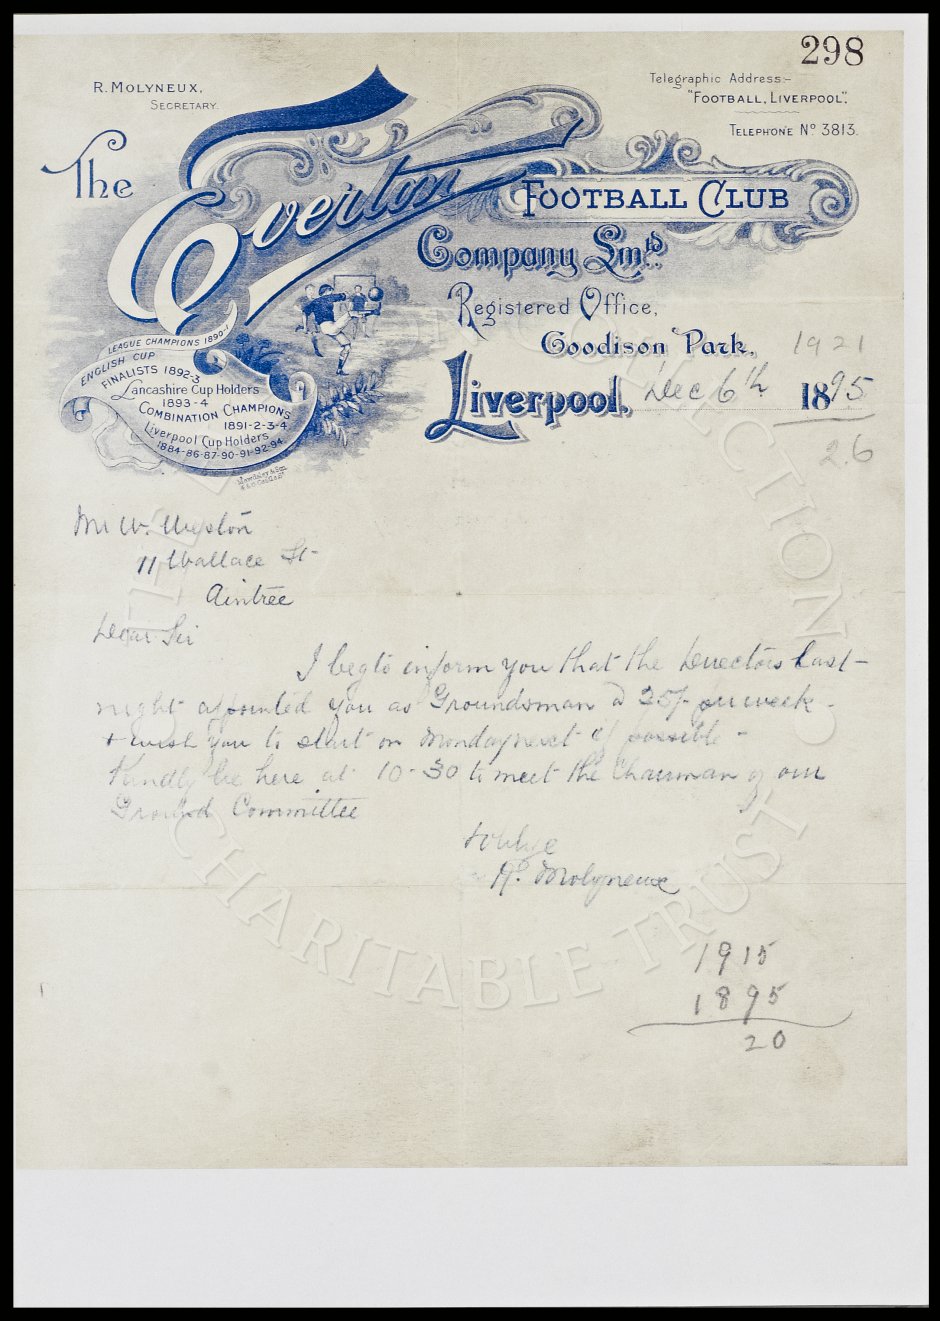 298
R. MOLYNEUX,
SECRETARY.
Telegraphic Address:-
"FOOTBALL, LIVERPOOL".
TELEPHONE No 3813.
The Everton FOOTBALL CLUB
Company Lmtd.
Registered Office,
Goodison Park,
Liverpool, Dec 6th 1895
1921
26
LEAGUE CHAMPIONS 1890-1
ENGLISH CUP
FINALISTS 1892-3
Lancashire Cup Holders
1893-4
COMBINATION CHAMPIONS
1891-2-3-4
Liverpool Cup Holders
1884-86-87-90-91-92-94
Mr W. Weston
11 Wallace St
Aintree
Dear Sir
I beg to inform you that the Directors last
night appointed you as Groundsman @ 25/- per week
+ wish you to start on Monday next if possible -
Kindly be here at 10-30 to meet the Chairman of our
Ground Committee
R. Molyneux
1915
1895
20
COLLECTION
CHARITABLE TRUST